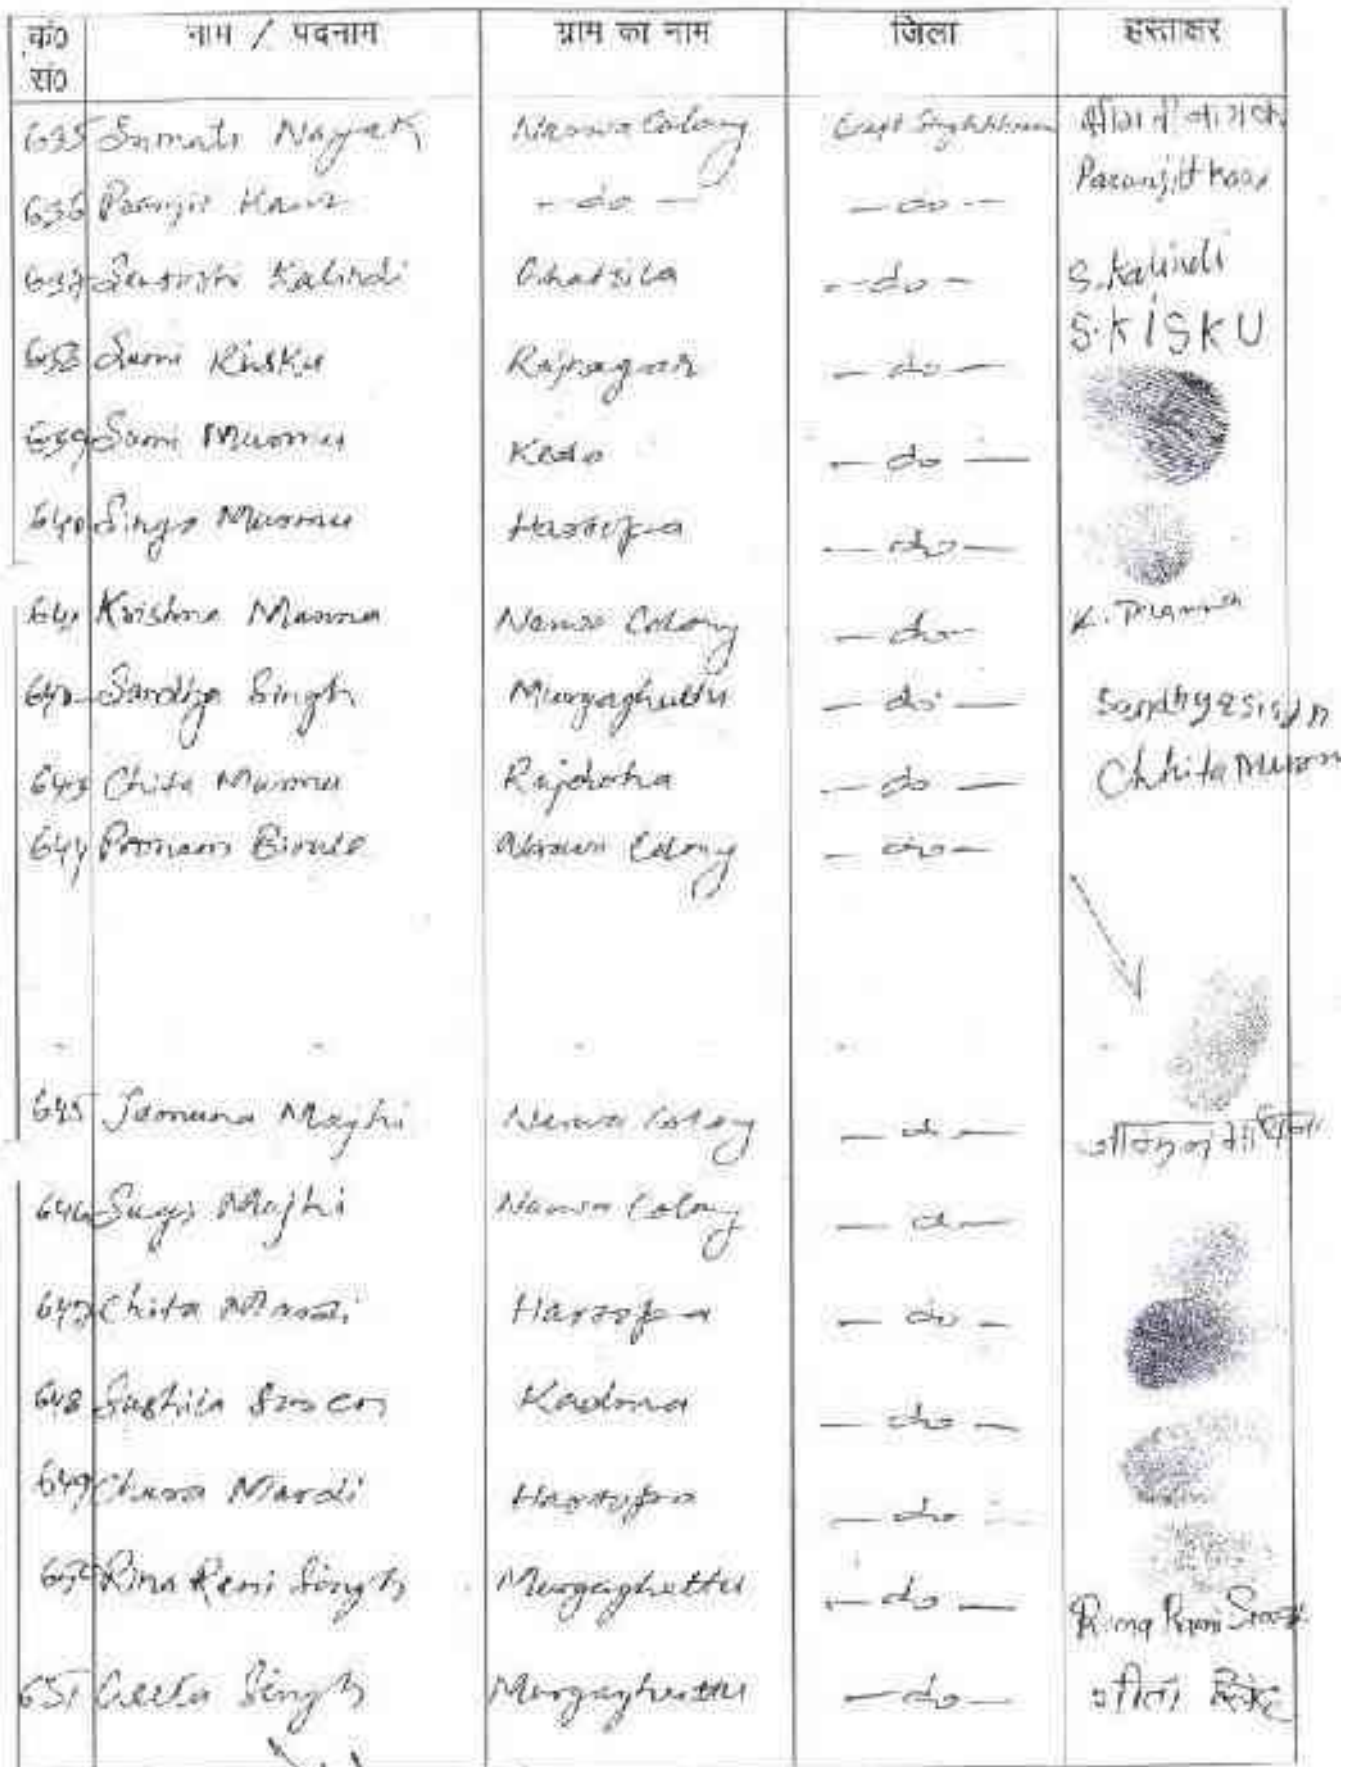 क्र० सं० नाम / पदनाम ग्राम का नाम जिला हस्ताक्षर
635 Srimati Nayak Narwa Colony East Singhbhum
636 Paramjit Kaur - do - - do - Paramjit Kaur
637 Santoshi Kalindi Ghatsila - do - S. Kalindi
638 Sumi Kisku Rajnagar - do - S. KISKU
639 Sumi Murmu Kedo - do -
640 Singo Murmu Hartopa - do -
641 Krishna Manna Narwa Colony - do - K. Manna
642 Sandhya Singh Murgaghuttu - do - Sandhya Singh
643 Chita Murmu Rajdoha - do - Chhita Murmu
644 Narwa Colony - do -
645 Jamuna Majhi Narwa Colony - do -
646 Majhi Narwa Colony - do -
647 Chita Mardi Hartopa - do -
648 Sushila Soren Kadma - do -
649 Mardi Hartopa - do -
650 Rina Rani Singh Murgaghuttu - do - Rina Rani Singh
651 Geeta Singh Murgaghuttu - do - गीता सिंह